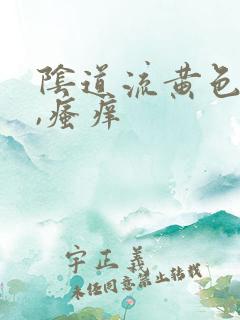 陰道流黄色
,瘙痒
宇正義
未经同意禁止转载